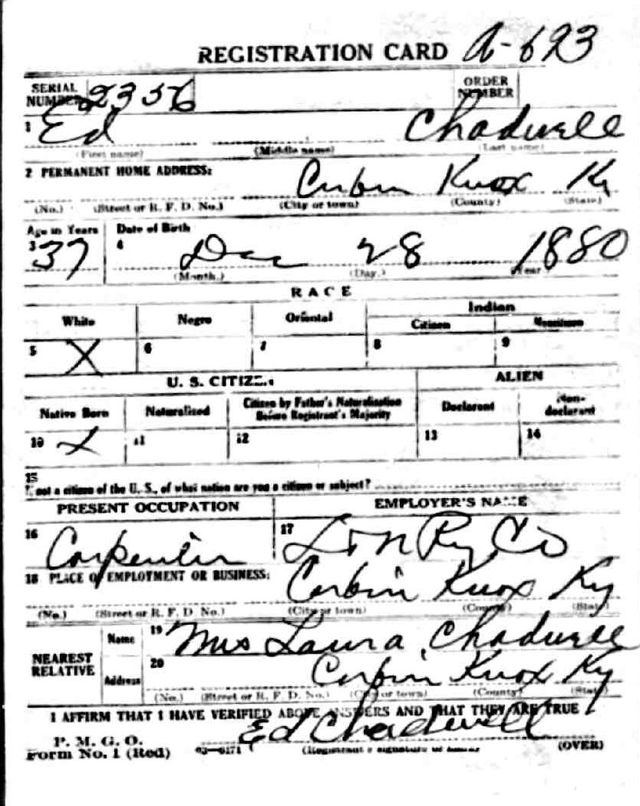 REGISTRATION CARD A-623
SERIAL NUMBER 2356 ORDER NUMBER
1 Ed Chadwell
(First name) (Middle name) (Last name)
2 PERMANENT HOME ADDRESS: Corbin Knox Ky
(No.) (Street or R. F. D. No.) (City or town) (County) (State)
Age in Years Date of Birth
3 37 4 Dec 28 1880
(Month.) (Day.) Year
RACE
White Negro Oriental Indian
Citizen Noncitizen
5 X 6 7 8 9
U. S. CITIZEN ALIEN
Native Born Naturalized Citizen by Father's Naturalization Before Registrant's Majority Declarant Non-declarant
10 X 11 12 13 14
15
If not a citizen of the U. S., of what nation are you a citizen or subject?
PRESENT OCCUPATION EMPLOYER'S NAME
16 Carpenter 17 L & N Ry Co
18 PLACE OF EMPLOYMENT OR BUSINESS: Corbin Knox Ky
(No.) (Street or R. F. D. No.) (City or town) (County) (State)
NEAREST RELATIVE
Name 19 Mrs Laura Chadwell
Address 20 Corbin Knox Ky
(No.) (Street or R. F. D. No.) (City or town) (County) (State)
I AFFIRM THAT I HAVE VERIFIED ABOVE ANSWERS AND THAT THEY ARE TRUE
P. M. G. O.
Form No. 1 (Red) 03-6171 Ed Chadwell
(Registrant's signature or mark) (OVER)